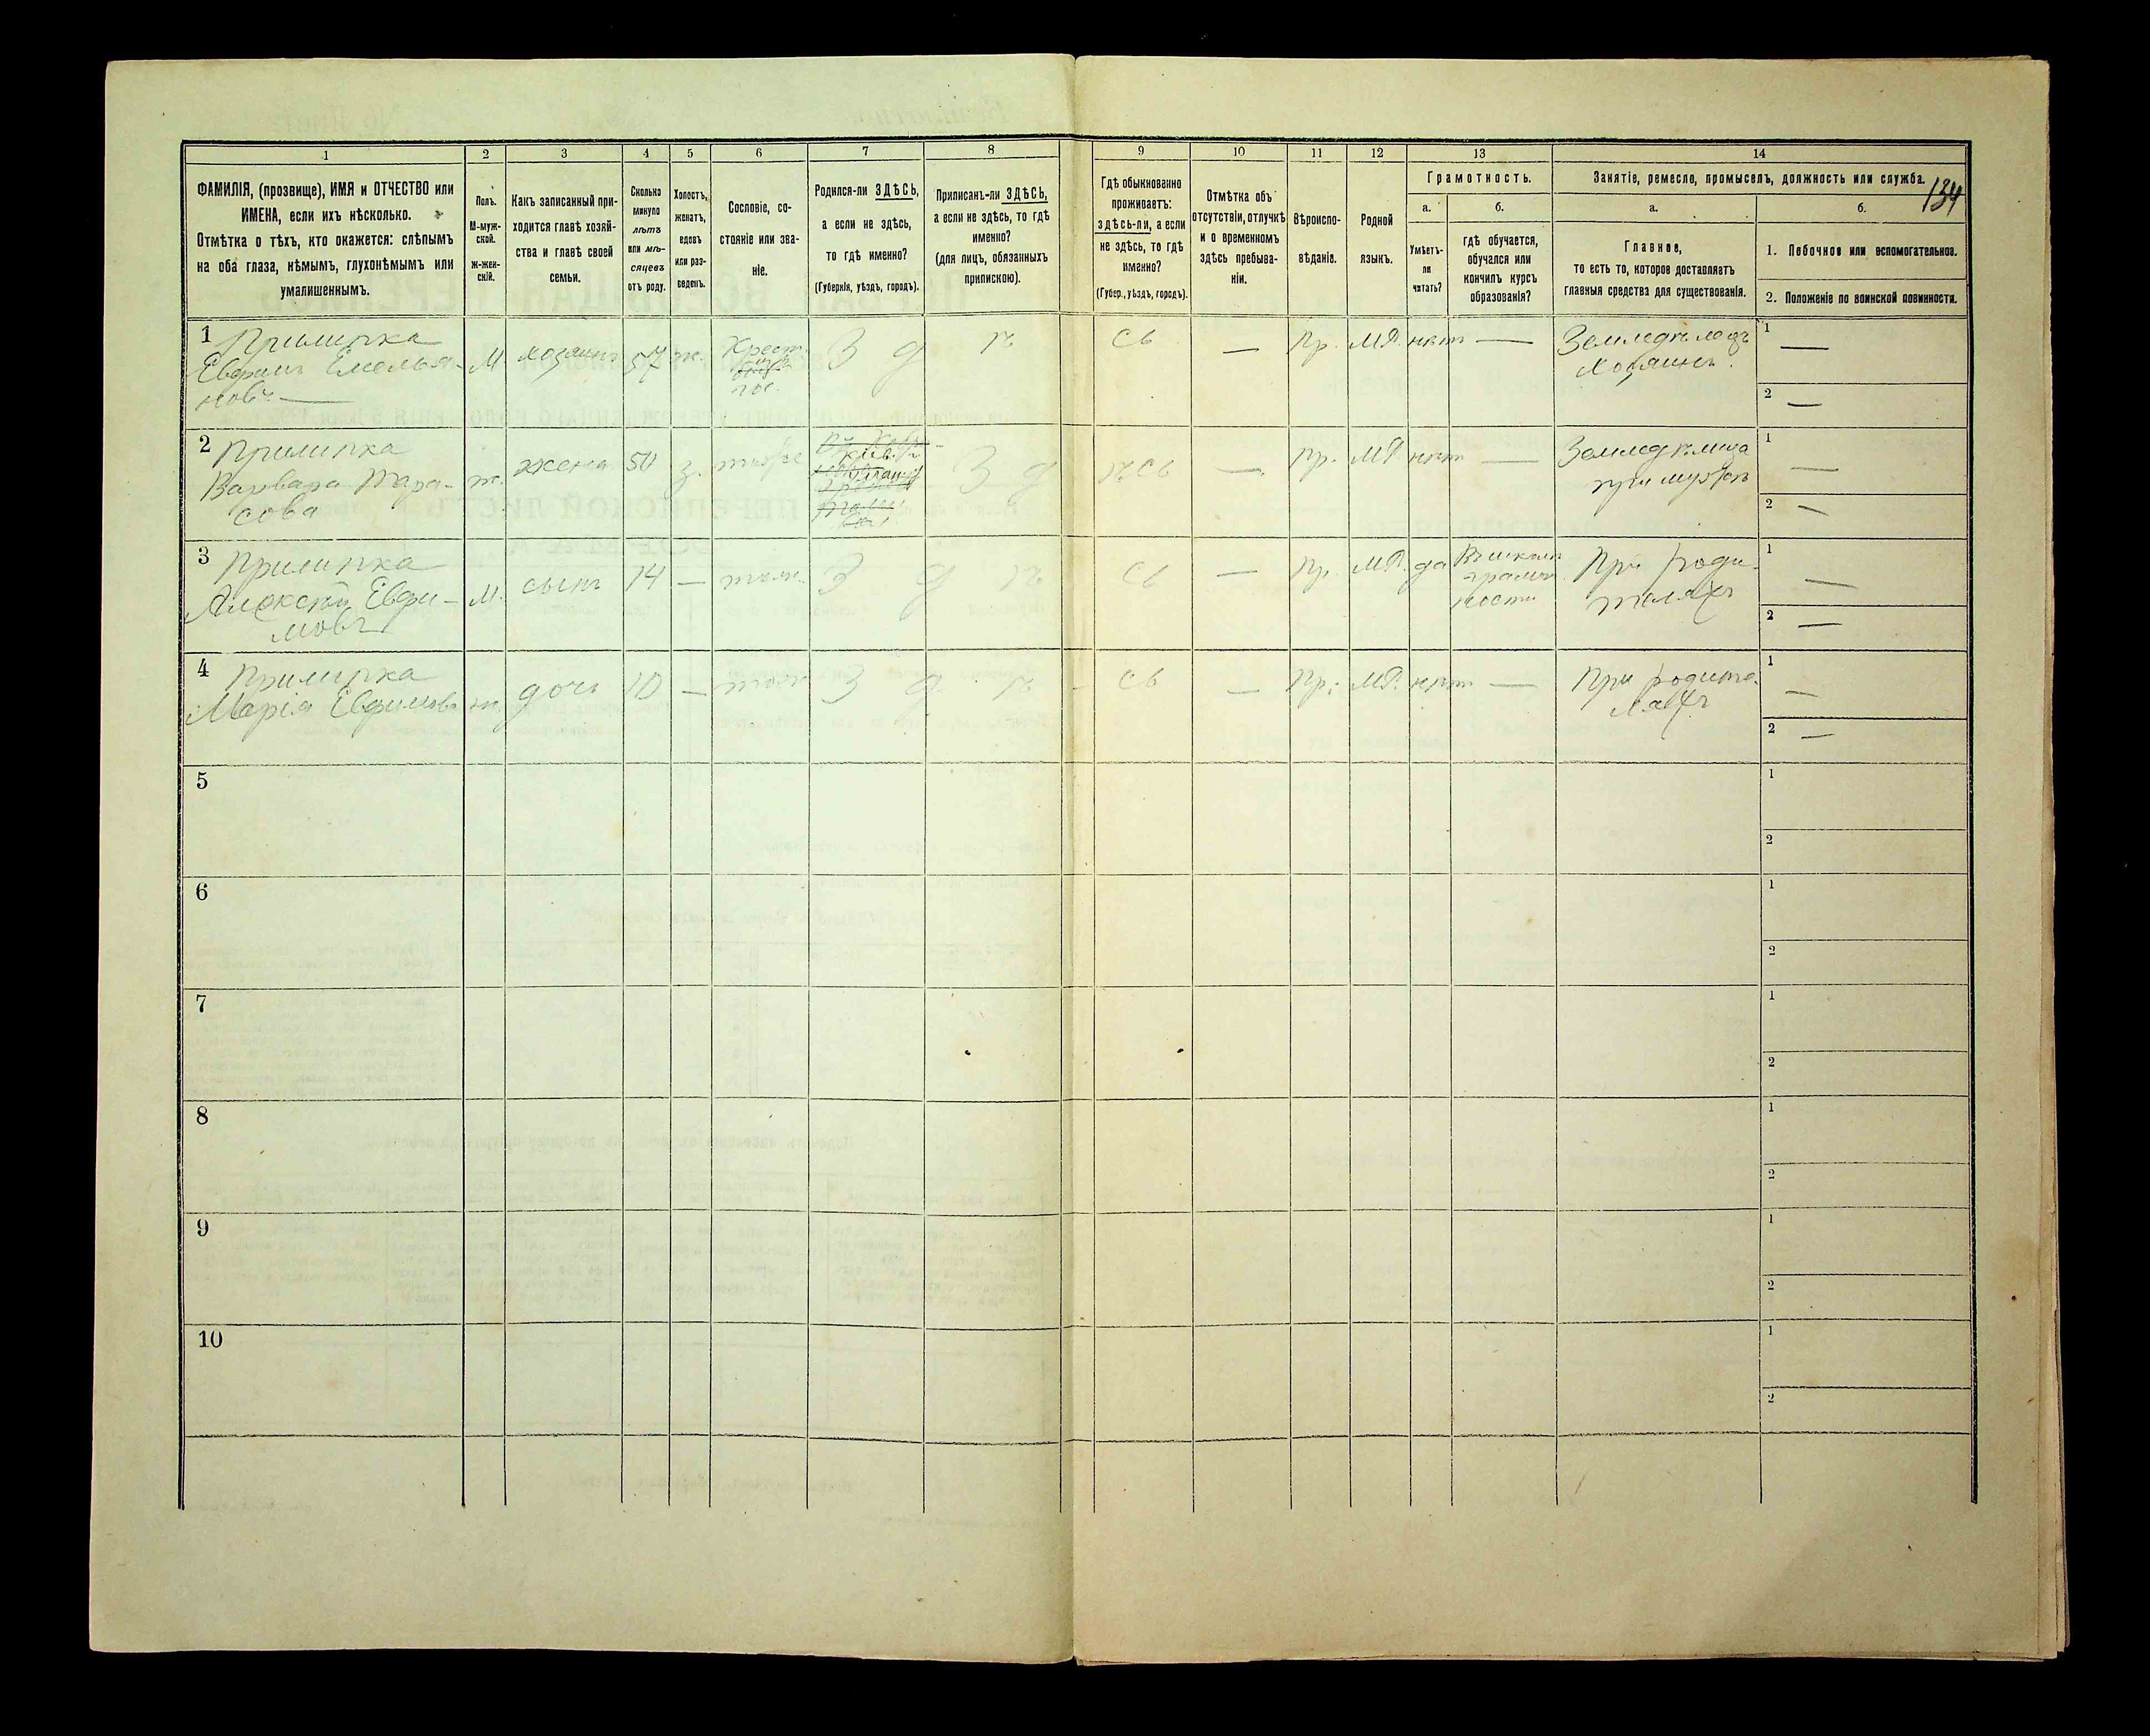 134
1 2 3 4 5 6 7 8 9 10 11 12 13 14
ФАМИЛІЯ, (прозвище), ИМЯ и ОТЧЕСТВО или
ИМЕНА, если ихъ нѣсколько.
Отмѣтка о тѣхъ, кто окажется: слѣпымъ
на оба глаза, нѣмымъ, глухонѣмымъ или
умалишеннымъ.
Полъ.
М-муж-
ской.
ж-жен-
скій.
Какъ записанный при-
ходится главѣ хозяй-
ства и главѣ своей
семьи.
Сколько
минуло
лѣтъ
или мѣ-
сяцевъ
отъ роду.
Холостъ,
женатъ,
вдовъ
или раз-
веденъ.
Сословіе, со-
стояніе или зва-
ніе.
Родился-ли ЗДѢСЬ,
а если не здѣсь,
то гдѣ именно?
(Губернія, уѣздъ, городъ).
Приписанъ-ли ЗДѢСЬ,
а если не здѣсь, то гдѣ
именно?
(для лицъ, обязанныхъ
припискою).
Гдѣ обыкновенно
проживаетъ:
здѣсь-ли, а если
не здѣсь, то гдѣ
именно?
(Губер., уѣздъ, городъ).
Отмѣтка объ
отсутствіи, отлучкѣ
и о временномъ
здѣсь пребыва-
ніи.
Вѣроиспо-
вѣданіе.
Родной
языкъ.
Грамотность.
а.
Умѣетъ-
ли
читать?
б.
гдѣ обучается,
обучался или
кончилъ курсъ
образованія?
Занятіе, ремесло, промыселъ, должность или служба.
а.
Главное,
то есть то, которое доставляетъ
главныя средства для существованія.
б.
1. Побочное или вспомогательное.
2. Положеніе по воинской повинности.
1 Прилипка
Евфимъ Емелья-
новъ —
М
хозяинъ
57
ж.
Крест.
гос.
З д ѣ сь
—
Пр.
М.Р.
нѣтъ
—
Земледѣлецъ
Хозяинъ.
1 —
2 —
2 Прилипка
Варвара Тара-
сова
ж.
жена
50
З.
З д ѣсь
—
Пр.
М.Р.
нѣтъ
—
Земледѣлица
при мужѣ
1 —
2 —
3 Прилипка
Алексѣй Евфи-
мовъ
М.
сынъ
14
—
З д ѣ сь
—
Пр.
М.Р.
да
Въ школѣ
грамот
ности
При роди-
теляхъ
1 —
2 —
4 Прилипка
Марія Евфимова
ж.
дочь
10
—
З д ѣ сь
—
Пр.
М.Р.
нѣтъ
—
При родите
ляхъ
1 —
2 —
5
1
2
6
1
2
7
1
2
8
1
2
9
1
2
10
1
2